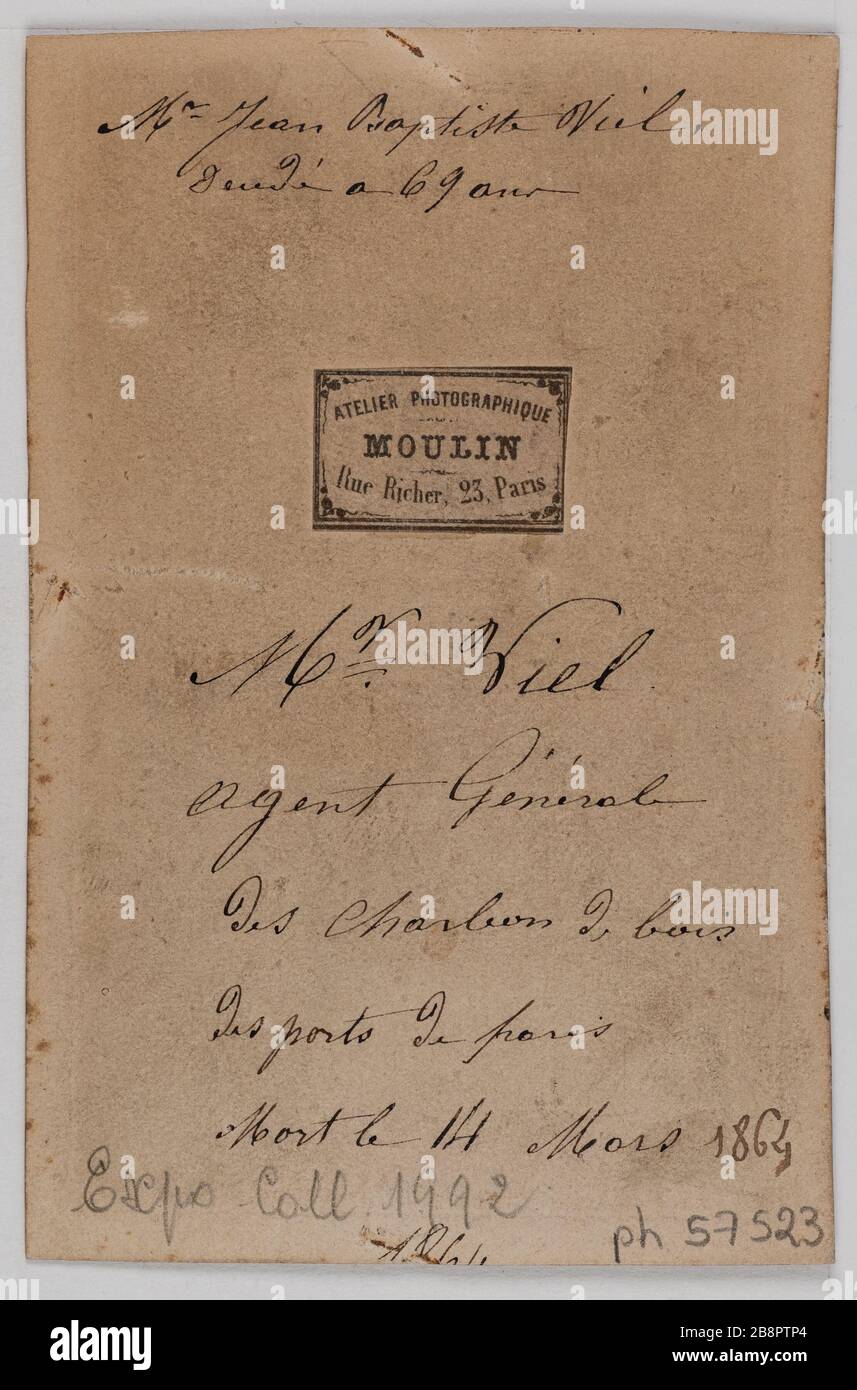 Mr Jean Baptiste Viel
Décédé a 69 ans
ATELIER PHOTOGRAPHIQUE
MOULIN
Rue Richer, 23, Paris
Mr. Viel
agent Général
des charbon de bois
des ports de paris
Mort le 14 Mars 1864
Expo Coll. 1992
ph 57523
1864
alamy
Image ID: 2B8PTP4
www.alamy.com